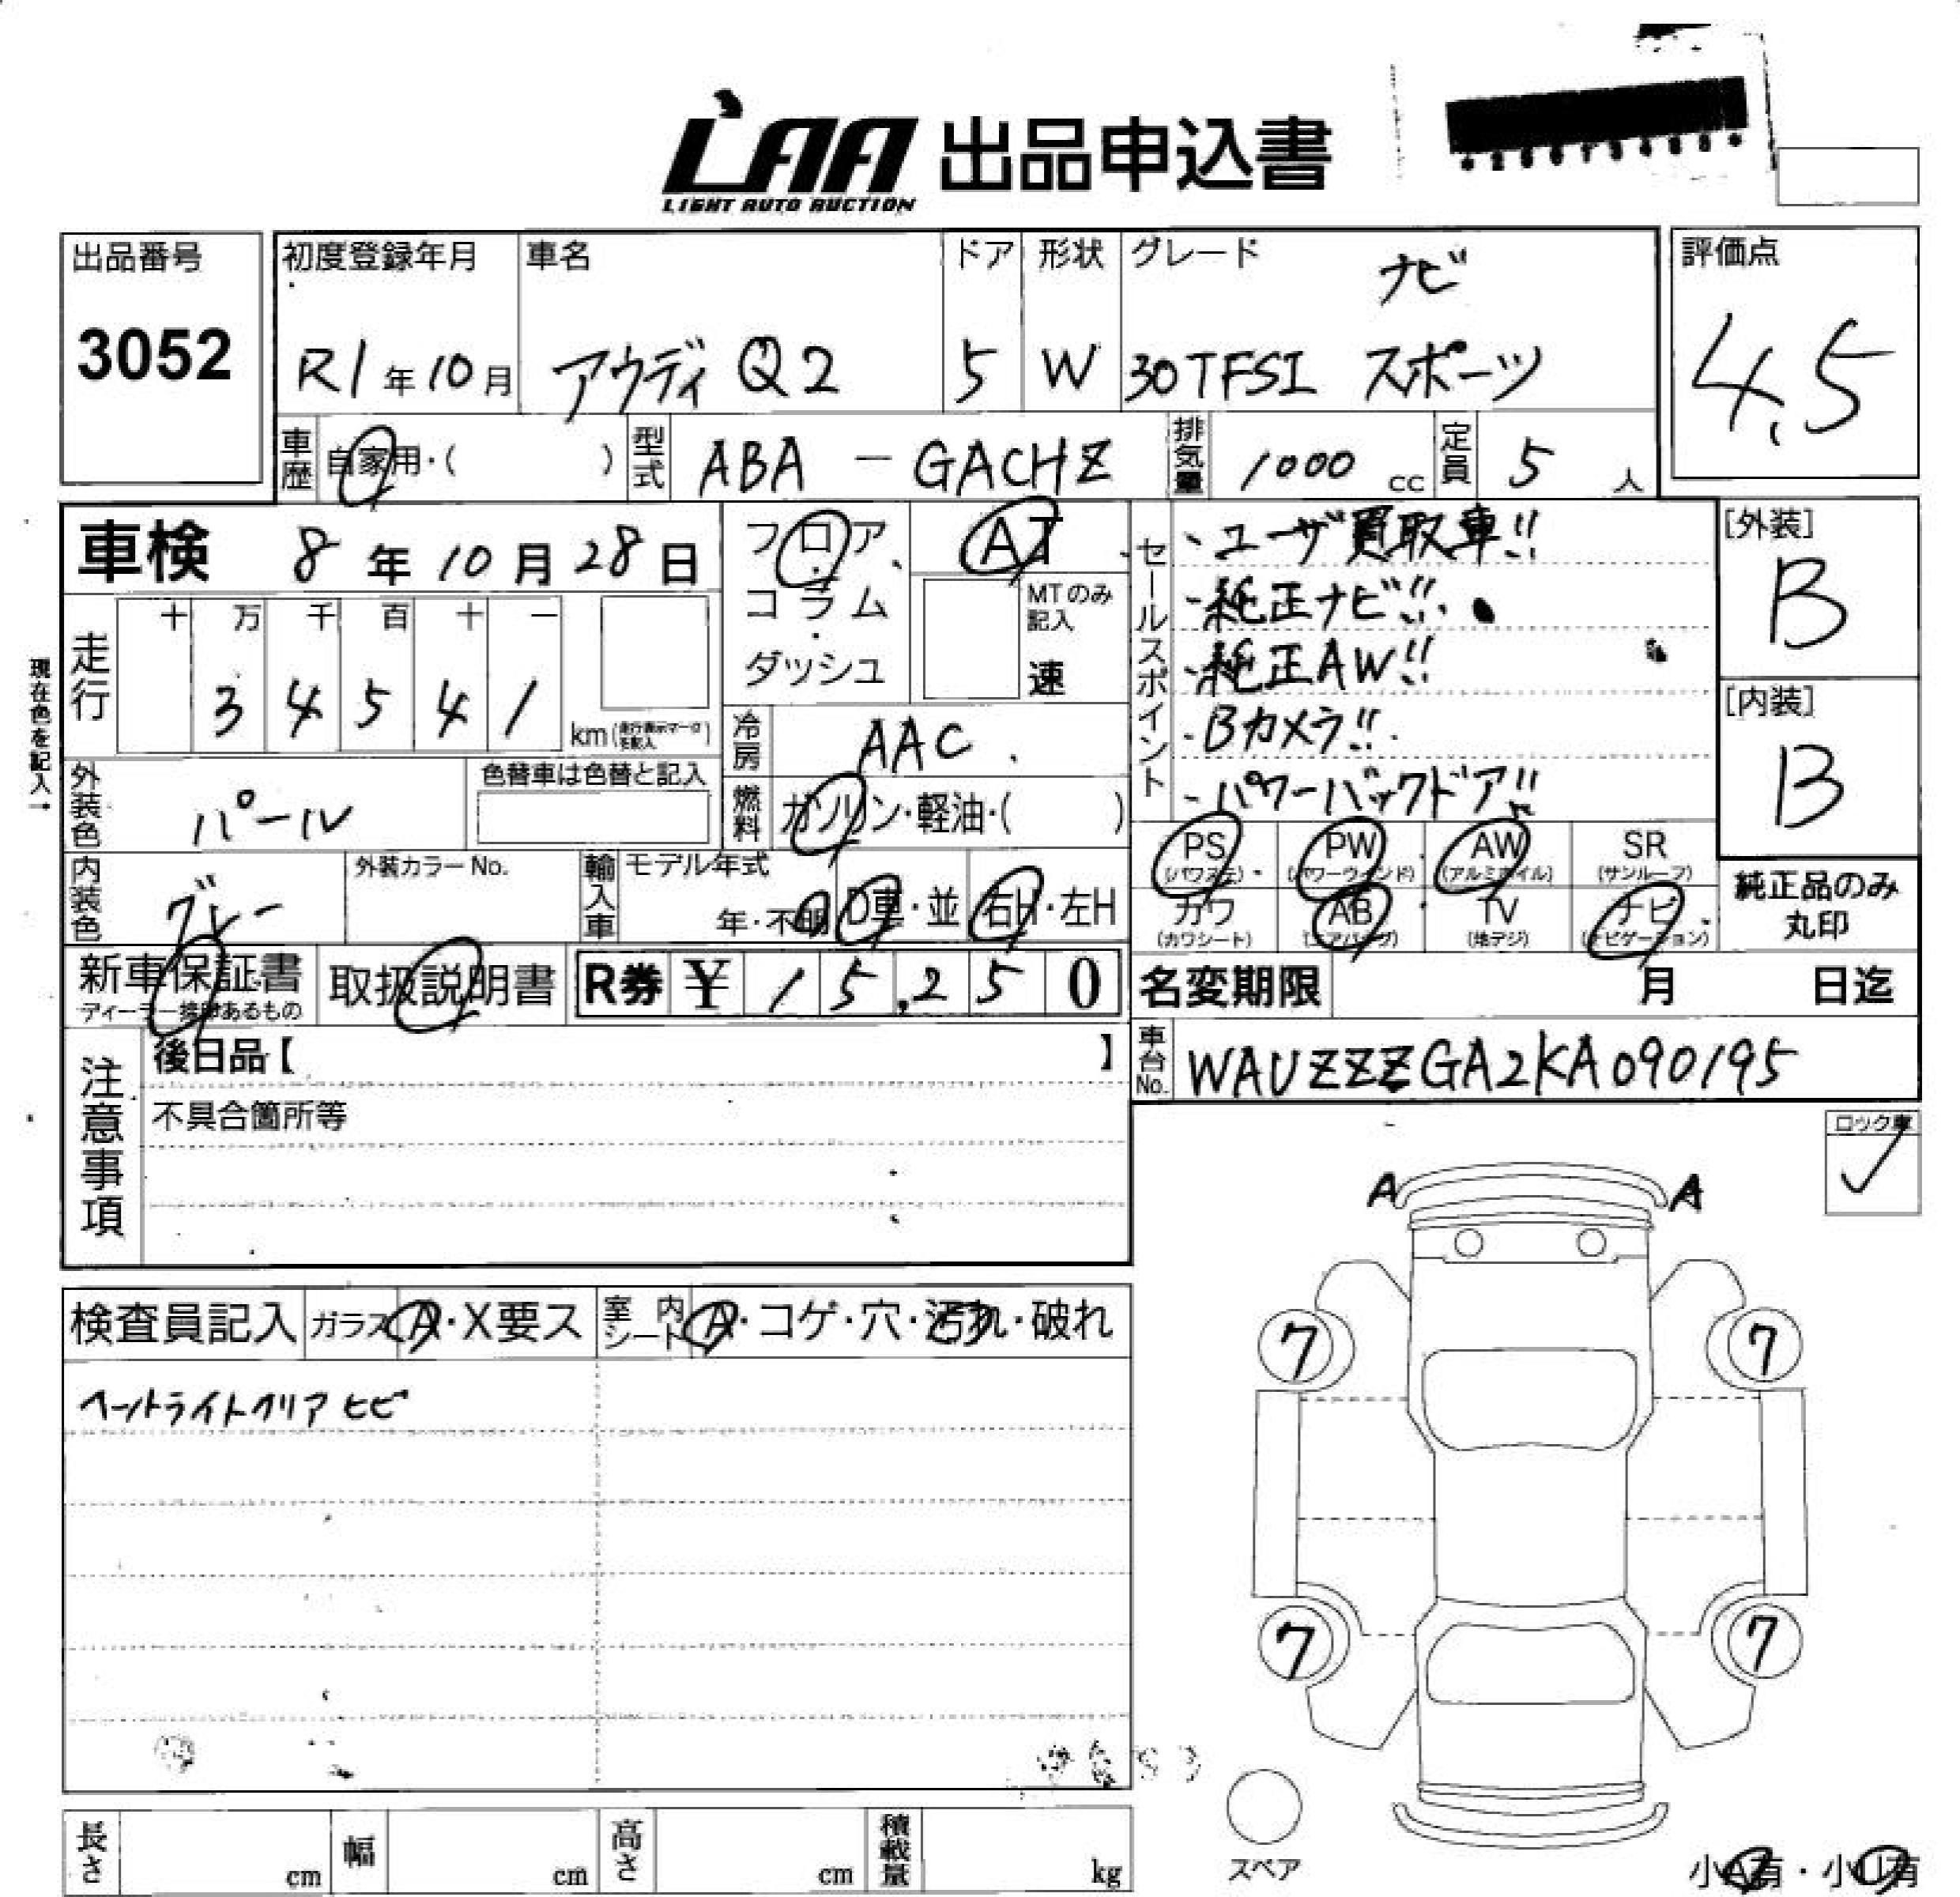 LAA 出品申込書
LIGHT AUTO AUCTION
出品番号
3052
初度登録年月
R1年10月
車名
アウディ Q2
ドア
5
形状
W
グレード
ナビ
30TFSI スポーツ
評価点
4.5
車歴
自家用・( )
型式
ABA - GACHZ
排気量
1000 cc
定員
5 人
車検 8年10月28日
フロア・コラム・ダッシュ
AT
MTのみ記入
速
セールスポイント
・ユーザ買取車!!
・純正ナビ!!
・純正AW!!
・Bカメラ!!
・パワーバックドア!!
[外装]
B
[内装]
B
現在色を記入→
走行
十 万 千 百 十 一
3 4 5 4 1
km(走行表示マークを記入)
冷房
AAC
外装色
パール
色替車は色替と記入
燃料
ガソリン・軽油・( )
PS (パワステ)
PW (パワーウィンド)
AW (アルミホイル)
SR (サンルーフ)
カワ (カワシート)
AB (エアバッグ)
TV (地デジ)
ナビ (ナビゲーション)
純正品のみ丸印
内装色
グレー
外装カラーNo.
輸入車
モデル年式
年・不明
D車・並
右H・左H
新車保証書
ディーラー捺印あるもの
取扱説明書
R券 ¥ 15,250
名変期限 月 日迄
注意事項
後日品【 】
不具合箇所等
車台No.
WAUZZZGA2KA090195
ロック車
✓
A A
検査員記入
ガラス A・X要ス
室内シート A・コゲ・穴・汚れ・破れ
ヘットライトクリア ヒビ
7 7
7 7
スペア
小A有・小U有
長さ cm
幅 cm
高さ cm
積載量 kg